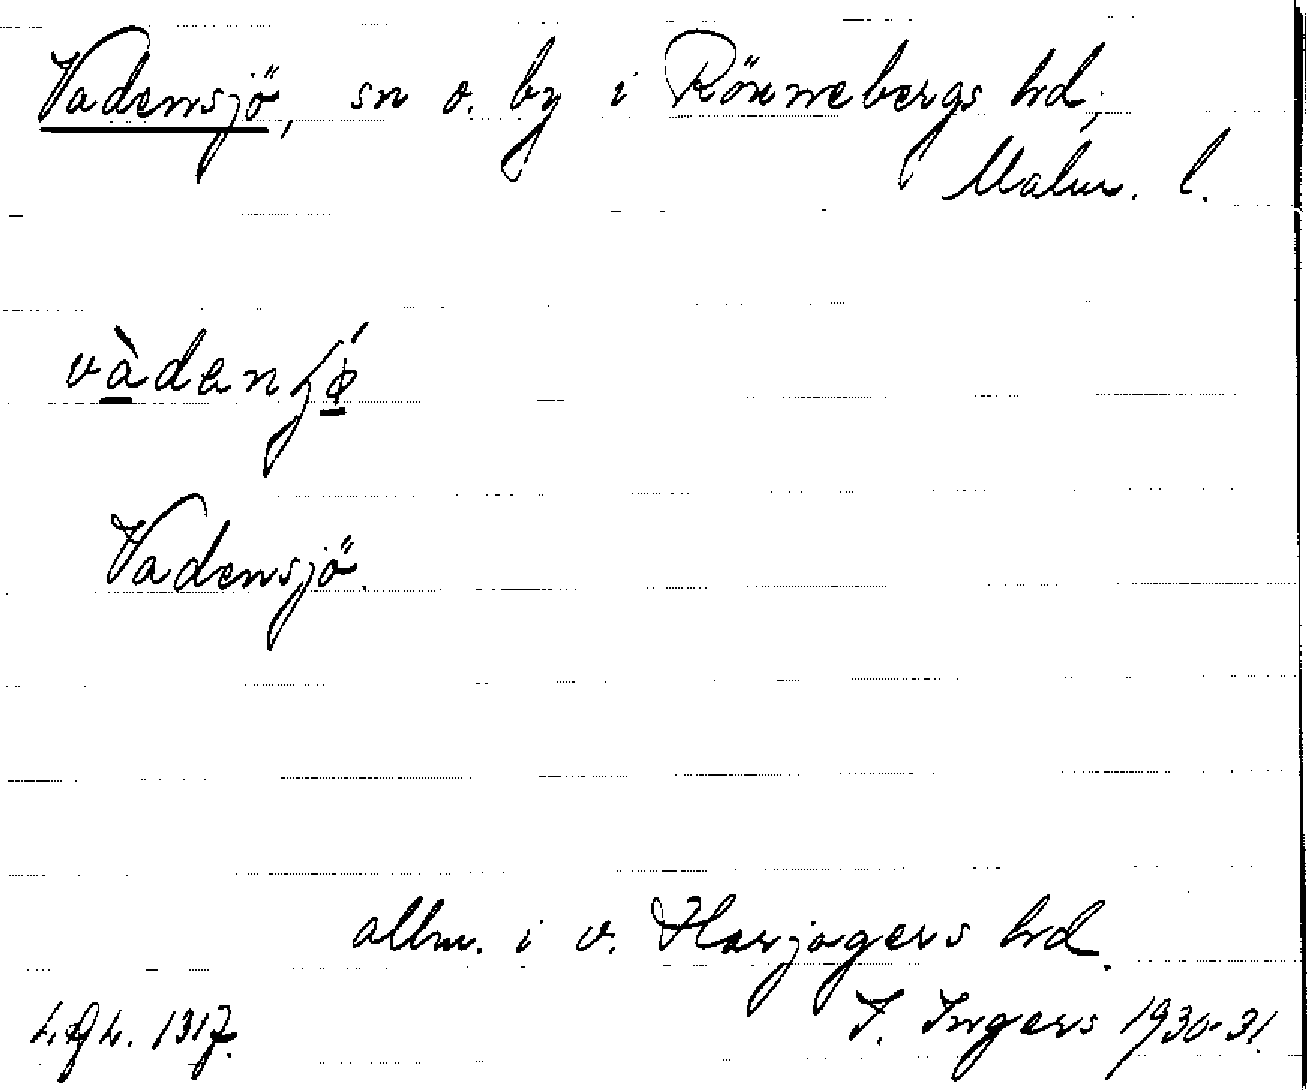 Vadensjö, sn o. by i Rönnebergs hd,
Malm. l.
Vadensjö.
allm. i v. Harjagers hd.
I. Ingers 1930-31.